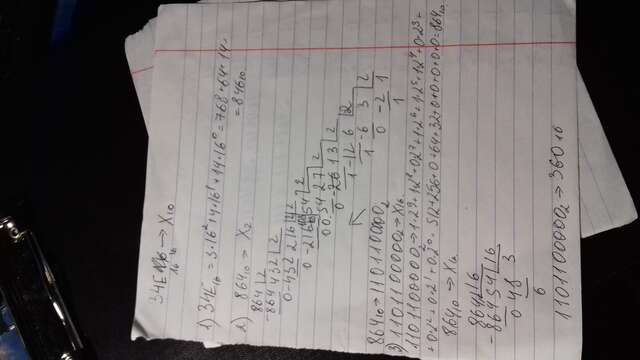 34E₁₆ → X₁₀
1) 34E₁₆ = 3·16² + 4·16¹ + 14·16⁰ = 768 + 64 + 14
= 846₁₀
2) 864₁₀ → X₂
864 | 2
-864 432 | 2
0 -432 216 | 2
0 -216 54 | 2
0 0 54 27 | 2
0 -26 13 | 2
1 -12 6 | 2
1 -6 3 | 2
0 -2 1
1
864₁₀ → 110110000₂
3) 1101100000₂ → X₁₆
1101100000₂ → 1·2⁹ + 1·2⁸ + 0·2⁷ + 1·2⁶ + 1·2⁵ + 1·2⁴ + 0·2³ +
+ 0·2² + 0·2¹ + 0·2⁰ = 512 + 256 + 0 + 64 + 32 + 0 + 0 + 0 + 0 + 0 = 864₁₀
864₁₀ → X₁₆
864 | 16
-864 54 | 16
0 48 3
6
1101100000₂ → 360₁₆